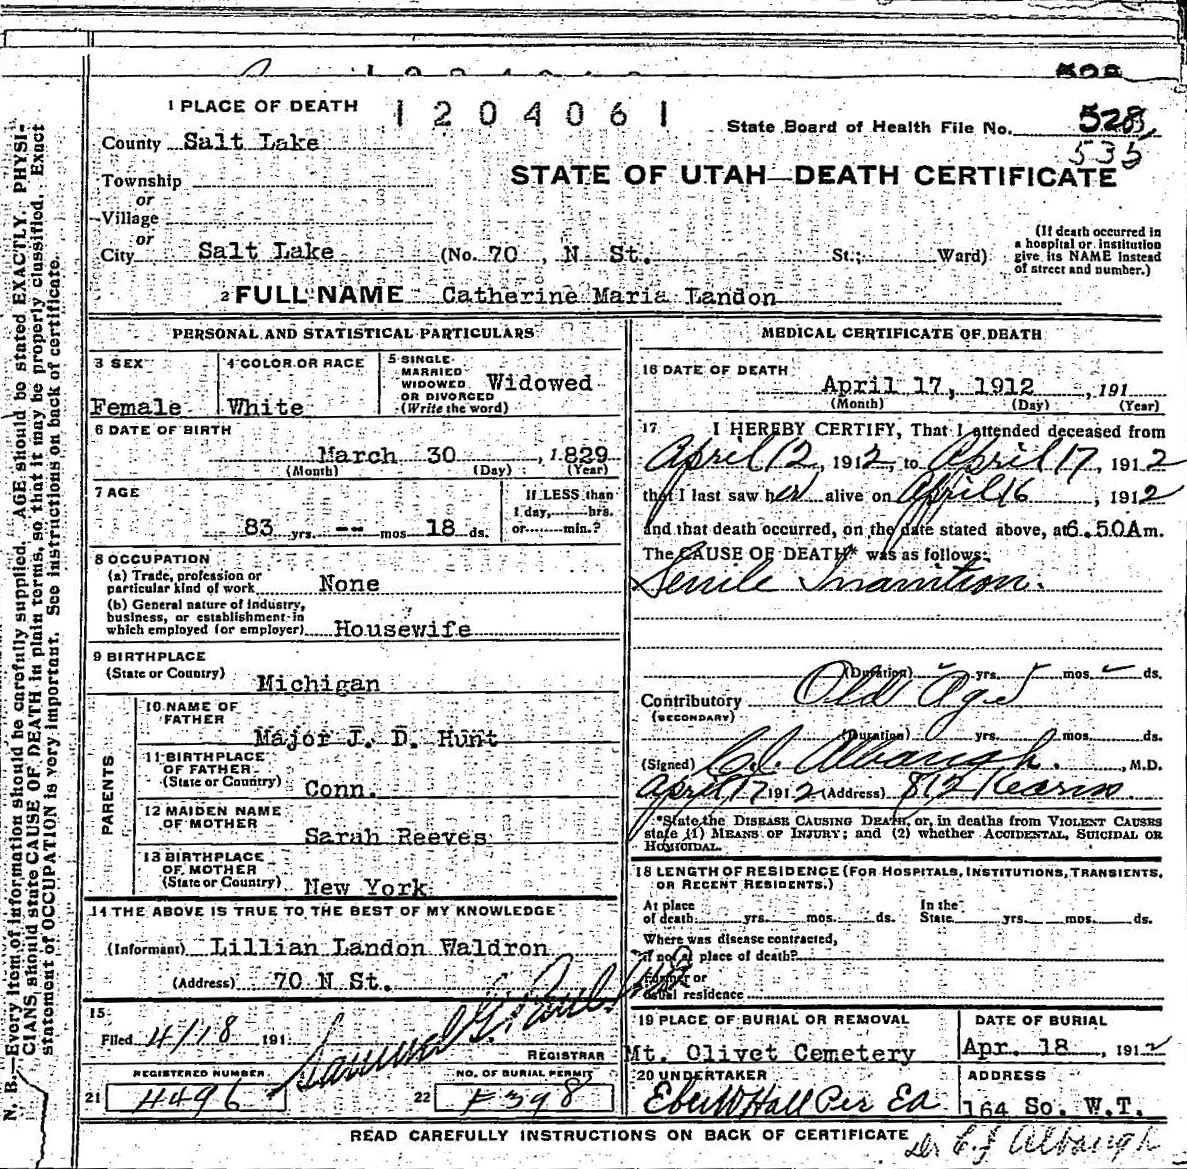 1 PLACE OF DEATH
1204061
State Board of Health File No. 528
535
County Salt Lake
Township
or
Village
or
STATE OF UTAH—DEATH CERTIFICATE
City Salt Lake (No. 70, N St. St.; Ward)
(If death occurred in a hospital or institution give its NAME instead of street and number.)
2 FULL NAME Catherine Maria Landon
PERSONAL AND STATISTICAL PARTICULARS
3 SEX
Female
4 COLOR OR RACE
White
5 SINGLE
MARRIED
WIDOWED
OR DIVORCED
(Write the word)
Widowed
6 DATE OF BIRTH
March 30, 1829
(Month) (Day) (Year)
7 AGE
83 yrs. -- mos 18 ds.
If LESS than
1 day, hrs.
or min.?
8 OCCUPATION
(a) Trade, profession or
particular kind of work None
(b) General nature of industry,
business, or establishment in
which employed (or employer) Housewife
9 BIRTHPLACE
(State or Country)
Michigan
PARENTS
10 NAME OF
FATHER
Major J. D. Hunt
11 BIRTHPLACE
OF FATHER
(State or Country) Conn.
12 MAIDEN NAME
OF MOTHER
Sarah Reeves
13 BIRTHPLACE
OF MOTHER
(State or Country) New York
14 THE ABOVE IS TRUE TO THE BEST OF MY KNOWLEDGE
(Informant) Lillian Landon Waldron
(Address) 70 N St.
15
Filed 4/18 191
Samuel G. Paul
REGISTRAR
REGISTERED NUMBER
21 4496
NO. OF BURIAL PERMIT
22 F398
MEDICAL CERTIFICATE OF DEATH
16 DATE OF DEATH
April 17, 1912, 191
(Month) (Day) (Year)
17 I HEREBY CERTIFY, That I attended deceased from
April 12, 1912, to April 17, 1912
that I last saw her alive on April 16, 1912
and that death occurred, on the date stated above, at 6.50A m.
The CAUSE OF DEATH* was as follows:
Senile Inanition.
(Duration) yrs. mos. ds.
Contributory Old Age
(SECONDARY)
(Duration) yrs. mos. ds.
(Signed) C. J. Albaugh., M.D.
April 17 1912 (Address) 812 Kearns
*State the DISEASE CAUSING DEATH, or, in deaths from VIOLENT CAUSES
state (1) MEANS OF INJURY; and (2) whether ACCIDENTAL, SUICIDAL OR
HOMICIDAL.
18 LENGTH OF RESIDENCE (FOR HOSPITALS, INSTITUTIONS, TRANSIENTS,
OR RECENT RESIDENTS.)
At place
of death yrs. mos. ds.
In the
State yrs. mos. ds.
Where was disease contracted,
if not at place of death?
Former or
usual residence
19 PLACE OF BURIAL OR REMOVAL
Mt. Olivet Cemetery
DATE OF BURIAL
Apr. 18, 1912
20 UNDERTAKER
Eber W Hall Per Ed
ADDRESS
164 So. W.T.
READ CAREFULLY INSTRUCTIONS ON BACK OF CERTIFICATE
Dr C J Albaugh
N. B.—Every item of information should be carefully supplied. AGE should be stated EXACTLY. PHYSI-
CIANS should state CAUSE OF DEATH in plain terms, so that it may be properly classified. Exact
statement of OCCUPATION is very important. See instructions on back of certificate.